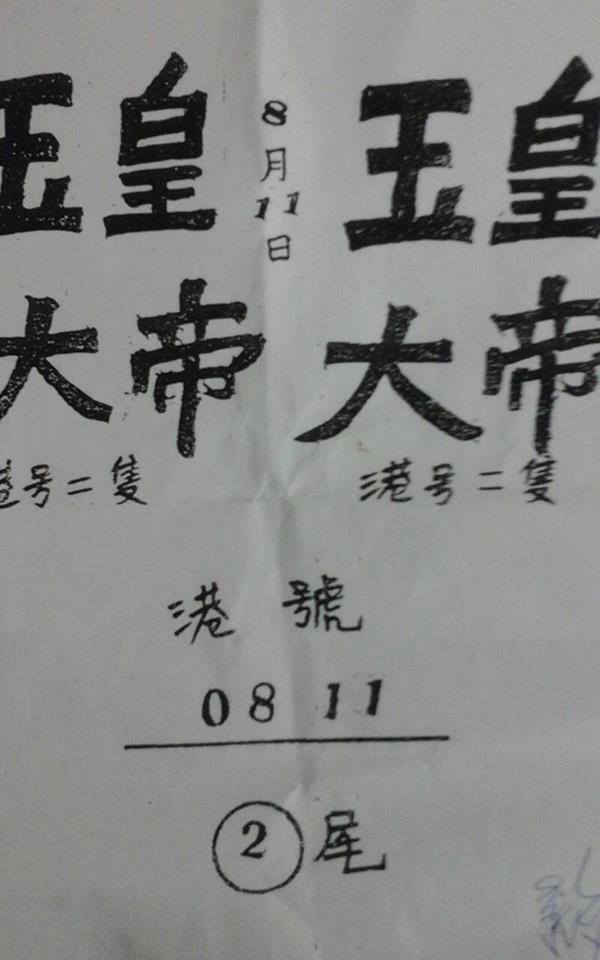 玉皇
大帝
港号二隻
8月11日
玉皇
大帝
港号二隻
港號
08 11
② 尾